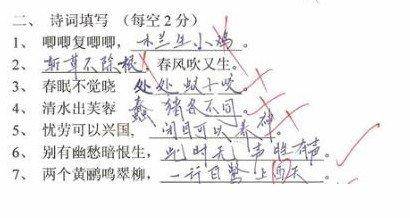 二、诗词填写 （每空2分）
1、唧唧复唧唧，木兰生小鸡。
2、斩草不除根，春风吹又生。
3、春眠不觉晓 处处蚊子咬。
4、清水出芙蓉 蠢猪各不同。
5、忧劳可以兴国，闭目可以养神。
6、别有幽愁暗恨生，此时无声胜有声。
7、两个黄鹂鸣翠柳，一行白鹭上西天。